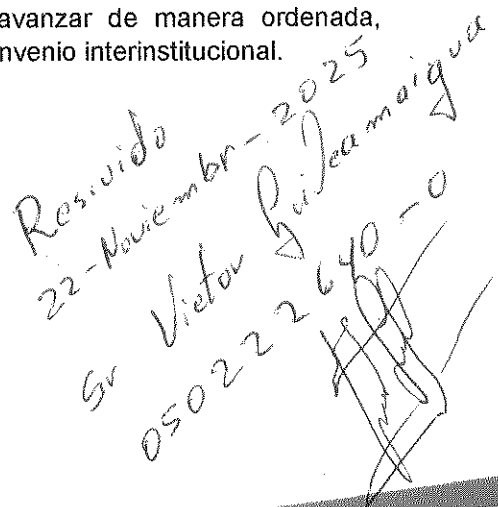 avanzar de manera ordenada,
nvenio interinstitucional.
Resivido
22-Noviembr-2025
Sr Victor Guilcamaigua
050222640-0